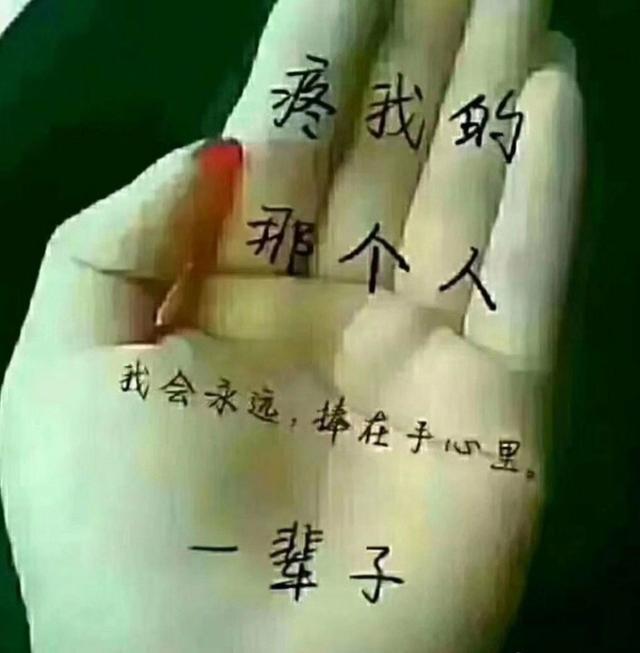 疼我的
那个人
我会永远,捧在手心里。
一辈子